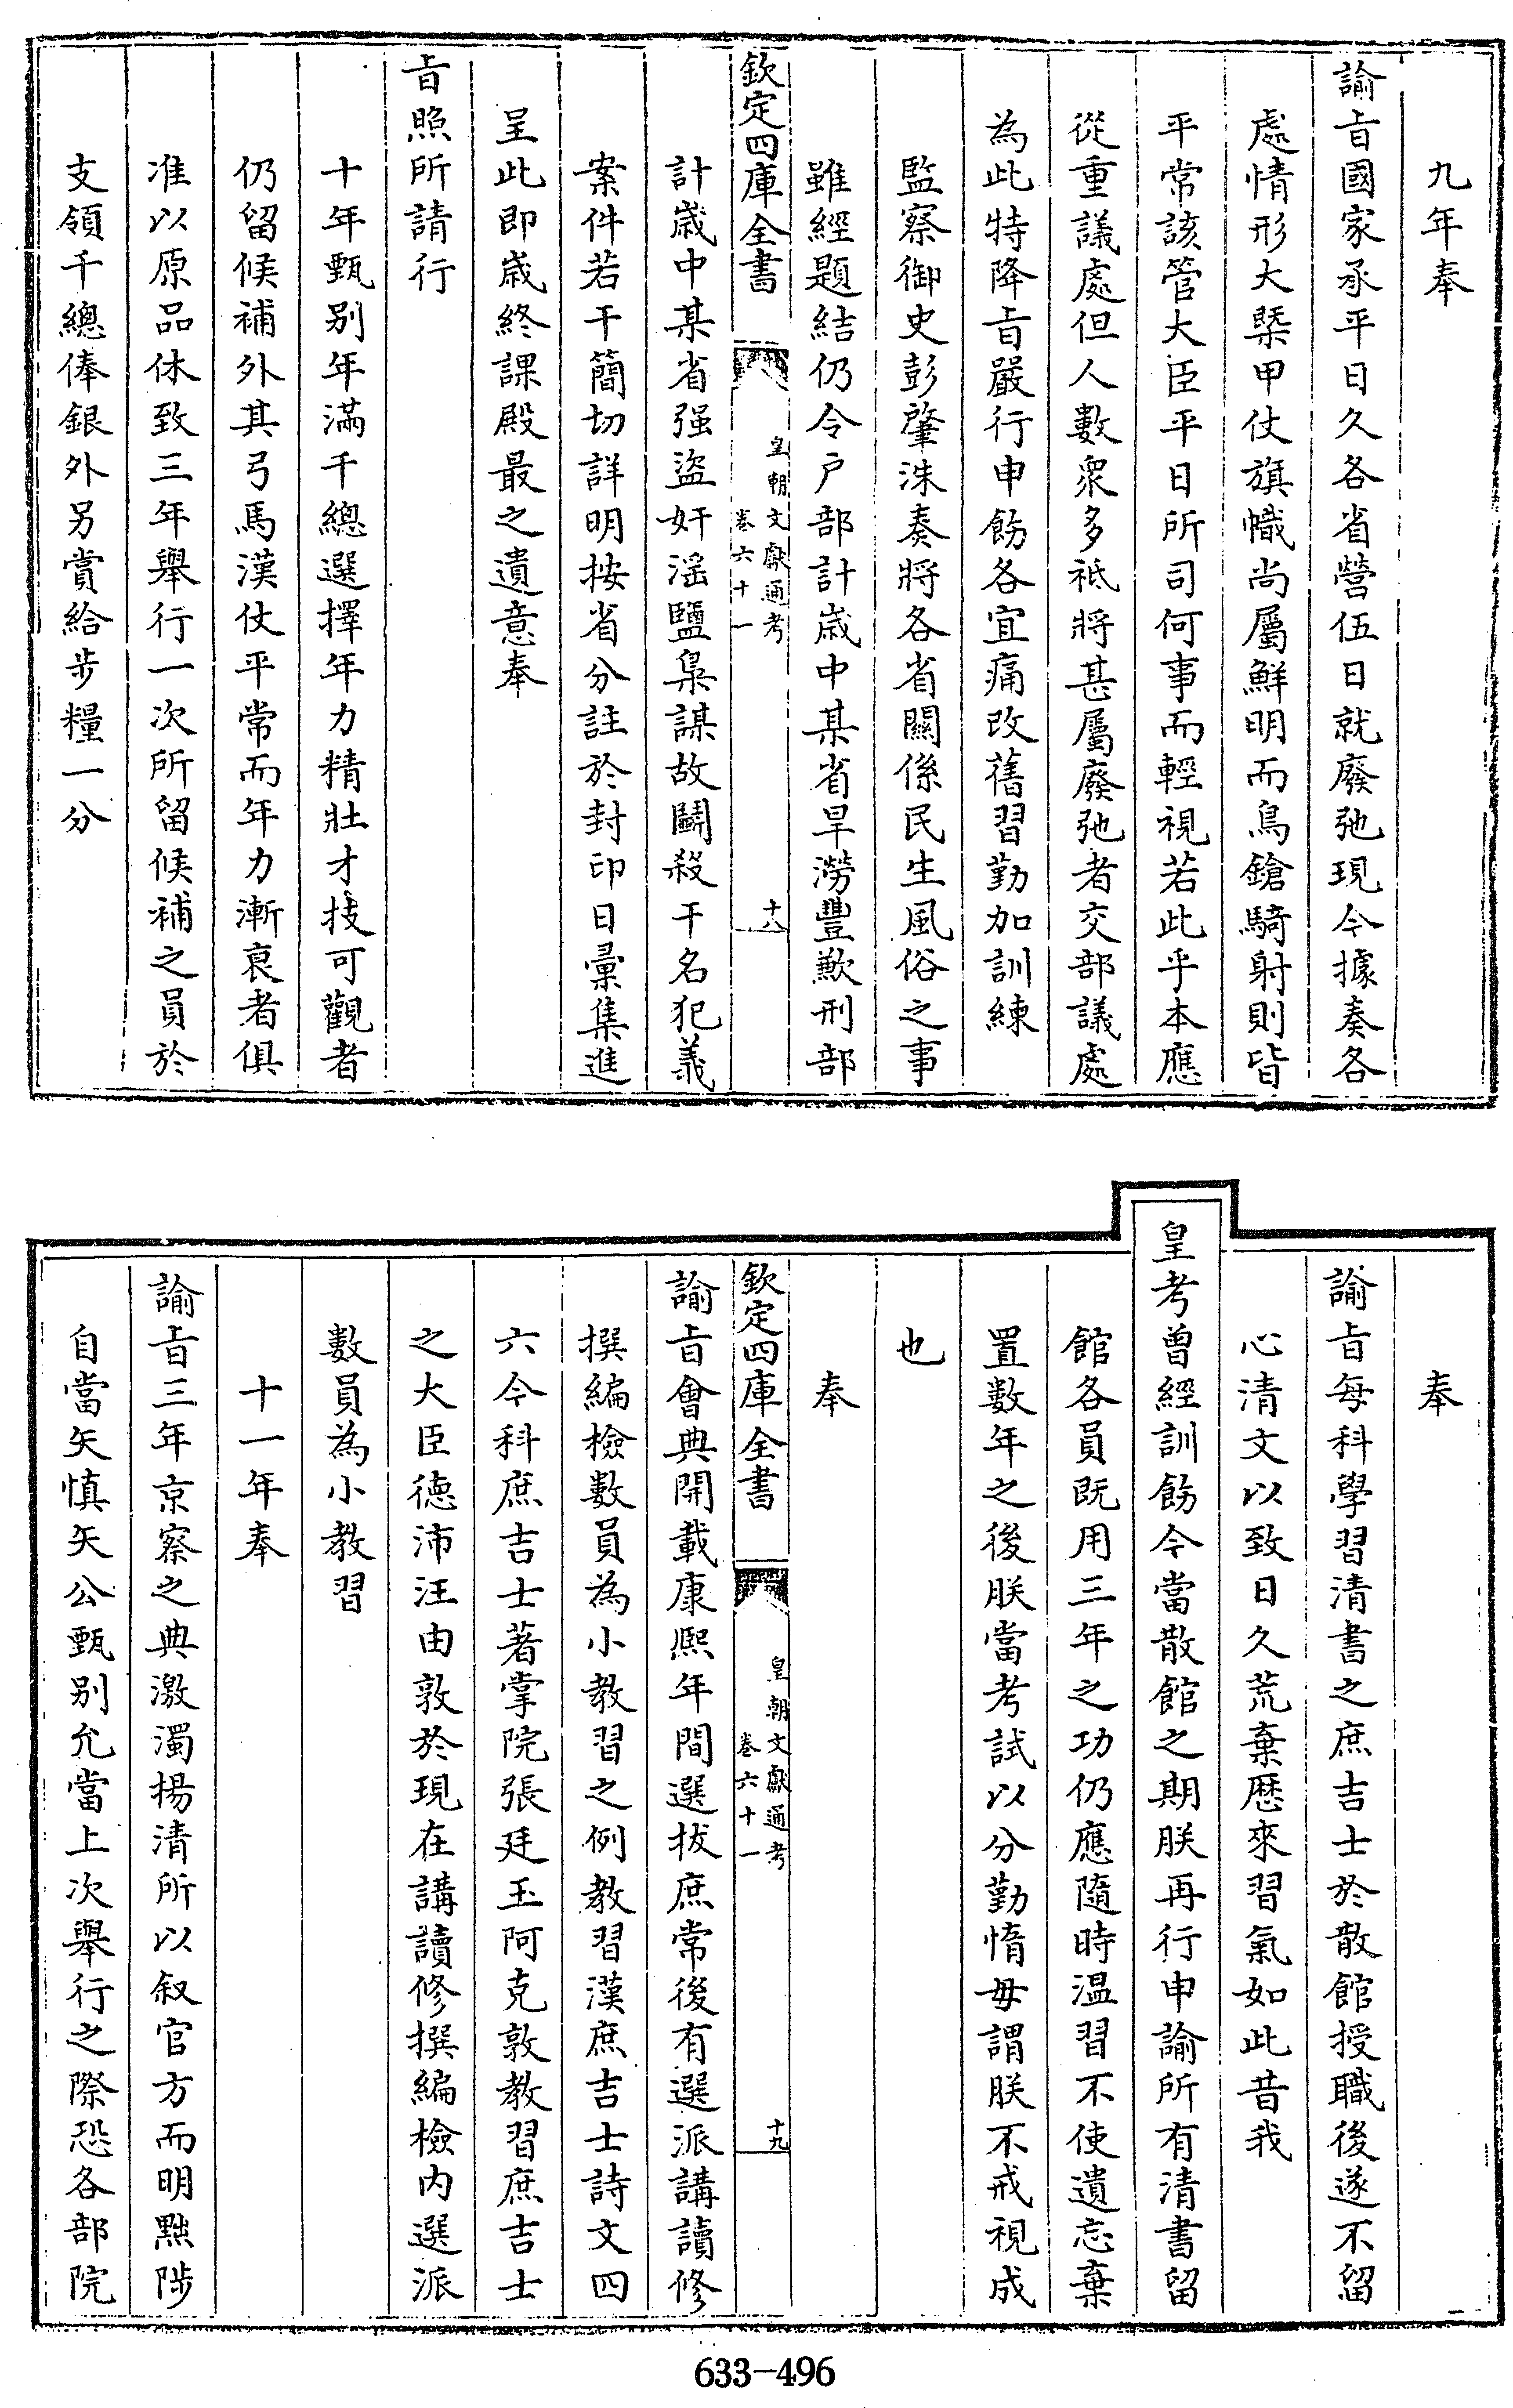 九年奉
諭旨國家承平日久各省營伍日就廢弛現今據奏各
處情形大槩甲仗旗幟尚屬鮮明而鳥鎗騎射則皆
平常該管大臣平日所司何事而輕視若此乎本應
從重議處但人數衆多祗將甚屬廢弛者交部議處
為此特降旨嚴行申飭各宜痛改舊習勤加訓練
監察御史彭肇洙奏將各省關係民生風俗之事
雖經題結仍令户部計歲中某省旱澇豐歉刑部
欽定四庫全書
皇朝文獻通考
卷六十一
十八
計歲中某省强盜奸滛鹽梟謀故鬭殺干名犯義
案件若干簡切詳明按省分註於封印日彚集進
呈此即歲終課殿最之遺意奉
旨照所請行
十年甄别年滿千總選擇年力精壯才技可觀者
仍留候補外其弓馬漢仗平常而年力漸衰者俱
准以原品休致三年舉行一次所留候補之員於
支領千總俸銀外另賞給步糧一分
奉
諭旨每科學習清書之庶吉士於散館授職後遂不留
心清文以致日久荒棄歷來習氣如此昔我
皇考曾經訓飭今當散館之期朕再行申諭所有清書留
館各員既用三年之功仍應隨時温習不使遺忘棄
置數年之後朕當考試以分勤惰毋謂朕不戒視成
也
奉
欽定四庫全書
皇朝文獻通考
卷六十一
十九
諭旨會典開載康熙年間選拔庶常後有選派講讀修
撰編檢數員為小教習之例教習漢庶吉士詩文四
六今科庶吉士著掌院張廷玉阿克敦教習庶吉士
之大臣德沛汪由敦於現在講讀修撰編檢内選派
數員為小教習
十一年奉
諭旨三年京察之典激濁揚清所以叙官方而明黜陟
自當矢慎矢公甄别允當上次舉行之際恐各部院
633-496